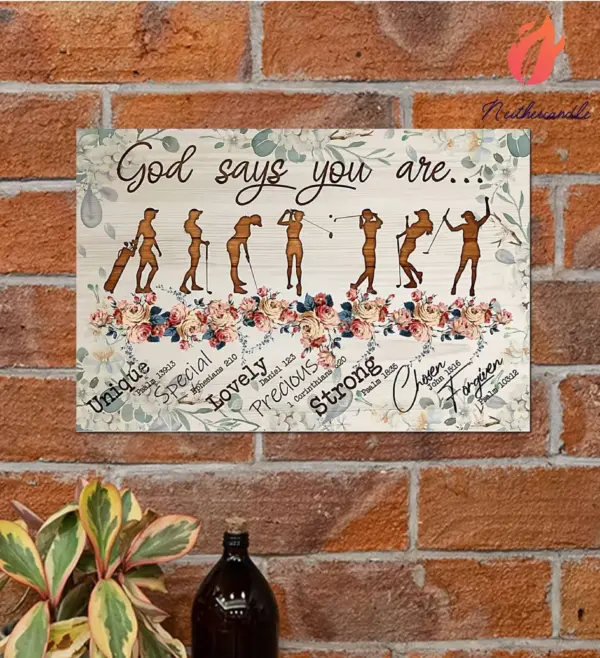 Neithercandle
God says you are...
Unique
Psalm 139:13
Special
Ephesians 2:10
Lovely
Daniel 12:3
Precious
1 Corinthians 6:20
Strong
Psalm 18:35
Chosen
John 15:16
Forgiven
Psalm 103:12